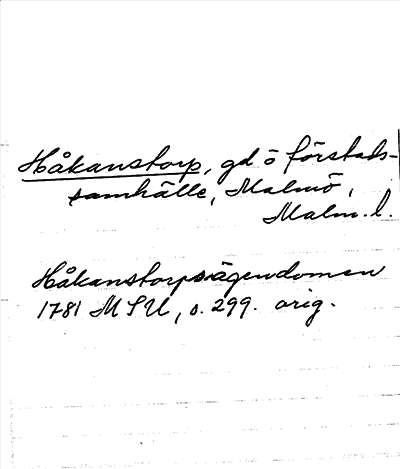 Håkanstorp, gd o förstads-
samhälle, Malmö,
Malm. l.
Håkanstorpsägendomen
1781 MSU, s. 299. orig.